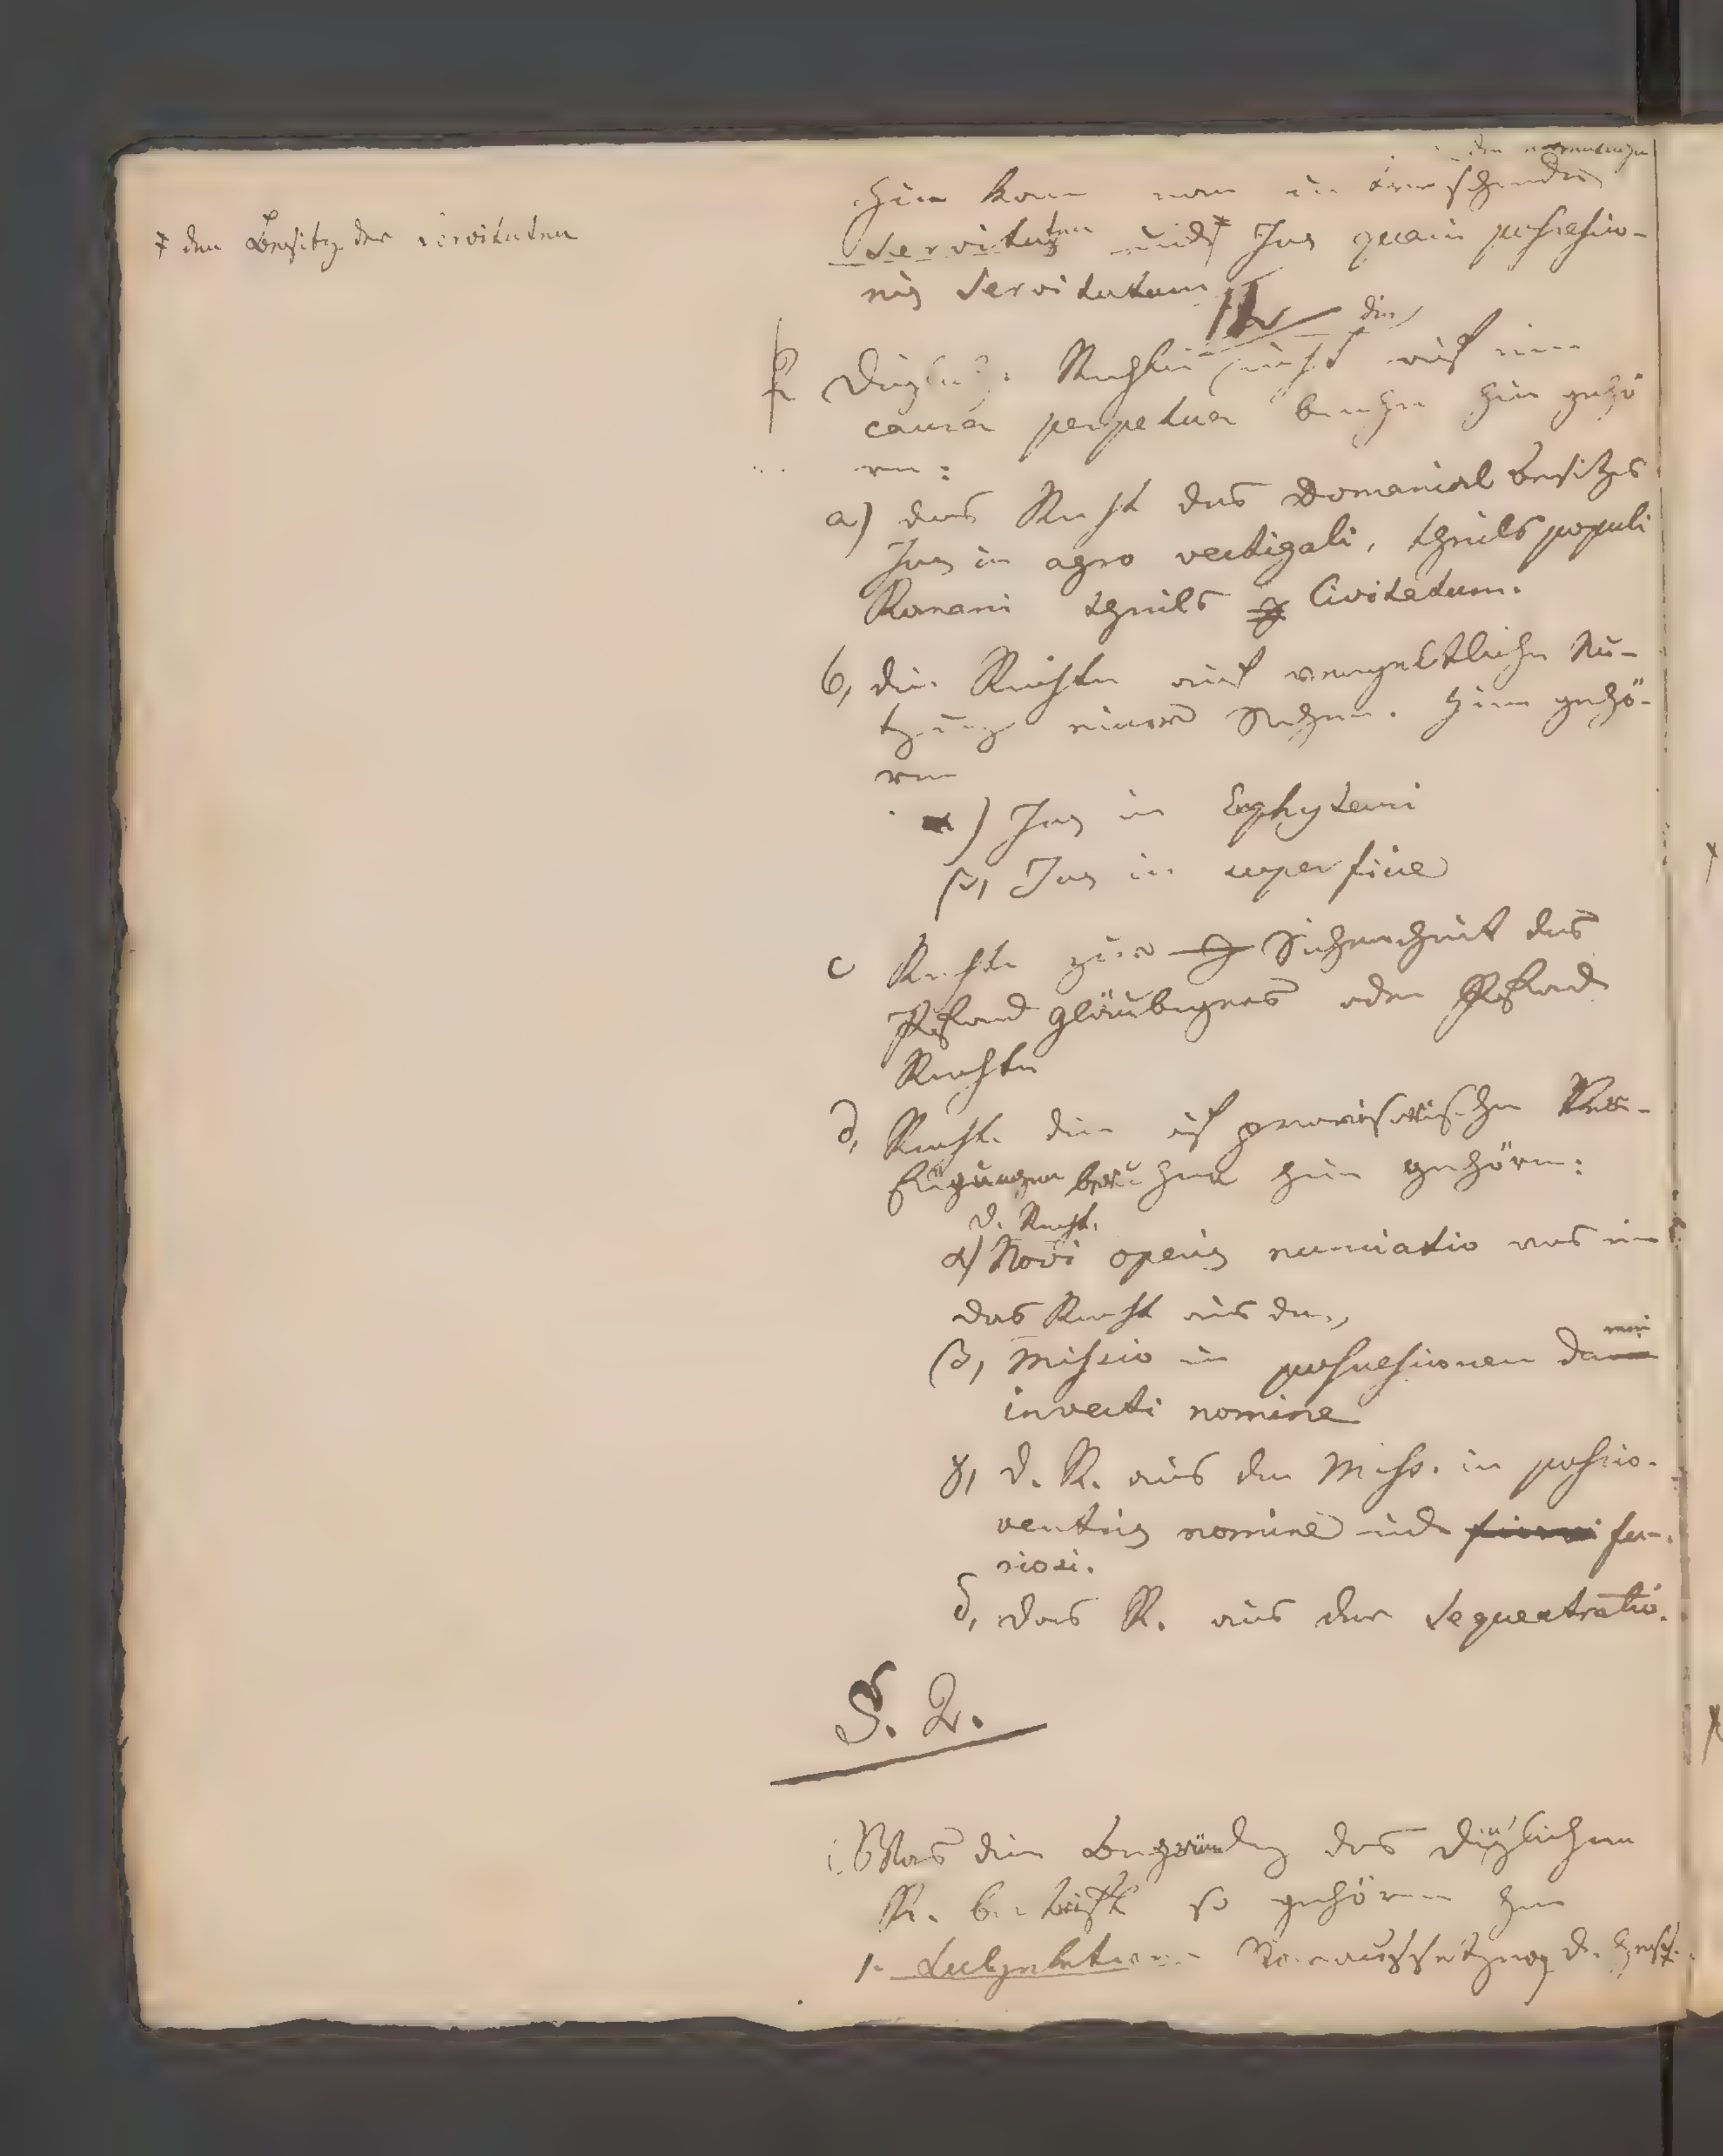 * den Besitz der Servituten
Hier kann man unterscheiden
Servituten und * Jus quasi possessio-
nis Servitutum
Dingliche Rechte die nicht auf einer
causa perpetua beruhen hier gehö
ren:
a) das Recht des Domanial Besitzes
Jus in agro vectigali, theils populi
Romani theils Civitatum.
b, die Rechte auf Nu-
tzung einer Sachen. Hier gehö-
ren
α) Jus in Emphyteusi
β, Jus in superficie
c Rechte zur Sicherheit des
Pfand gläubigers oder Pfand
Rechte
d, Rechte die auf provisorischen Ver-
fügungen beruhen hier gehören:
d. Recht.
α) Novi operis nunciatio
das Recht aus der
β, Missio in possessionem damni
invecti nomine
γ, d. R. aus der Miss. in possio.
ventris nomine und fu-
riosi.
δ, das R. aus der Sequestratio.
§. 2.
Was die Begründung des dinglichen
R. betrifft so gehören hier
1. Voraussetzung d.